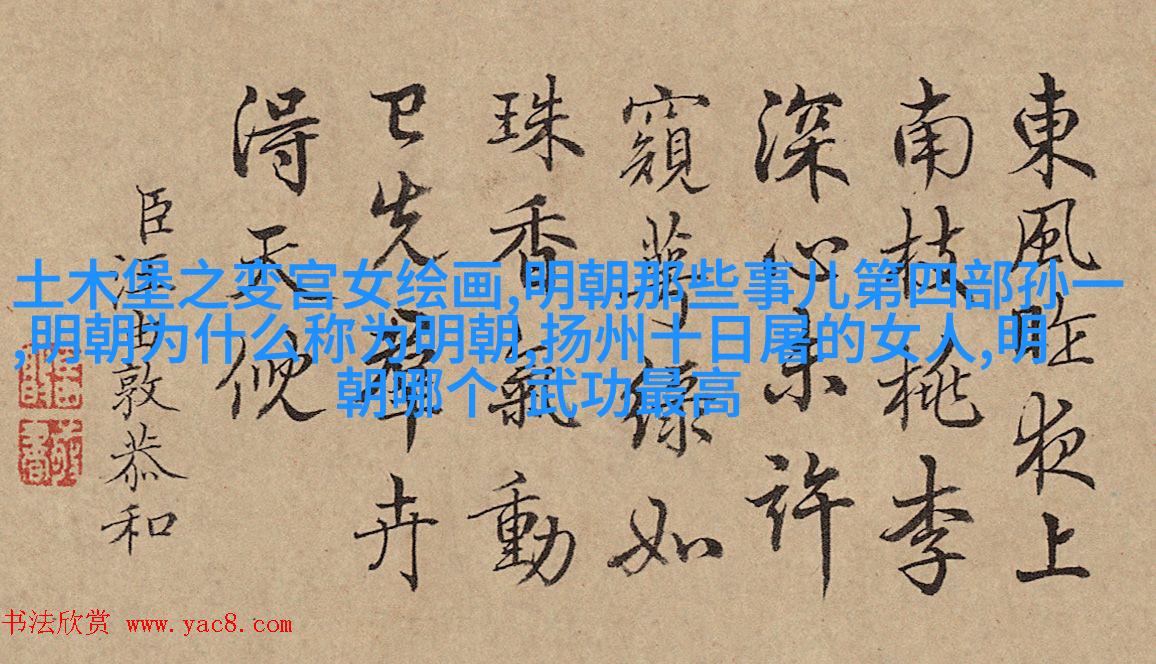 東風昨夜上
南枝桃李
深心未許
窺萼綠如
珠香氣動
已先羣卉
得天倪
臣汪由敦恭和
土木堡之变宫女绘画,明朝那些事儿第四部孙一
,明朝为什么称为明朝,扬州十日屠的女人,明
朝哪个 武功最高
书法欣赏 www.yac8.com